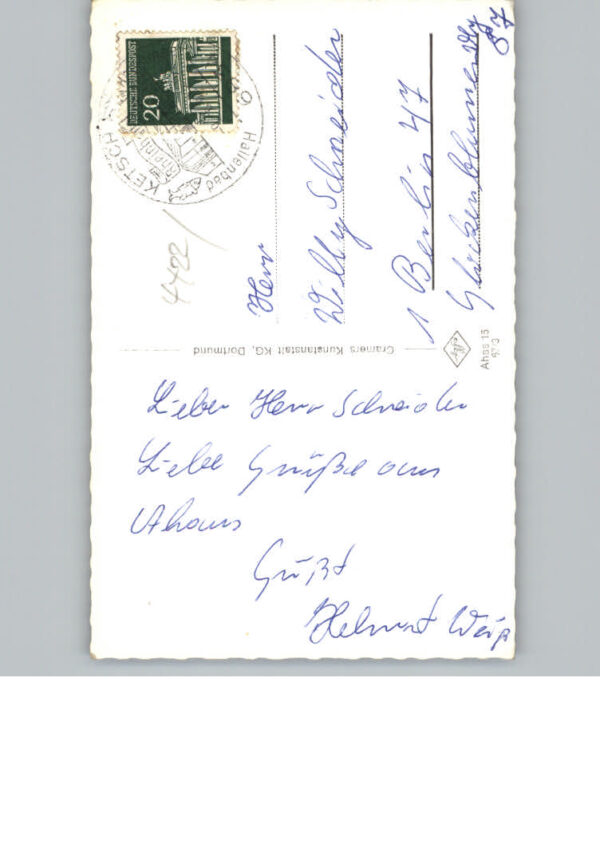 DEUTSCHE BUNDESPOST
20
KETSCH
Hallenbad
4422/
Herr
Willy Schneider
1 Berlin 47
Glockenblumenweg
87
Cramers Kunstanstalt KG, Dortmund
Ahss 15
67/3
Lieber Herr Schneider
Liebe Grüße aus
Ahaus
Grüßt
Helmut Weiß